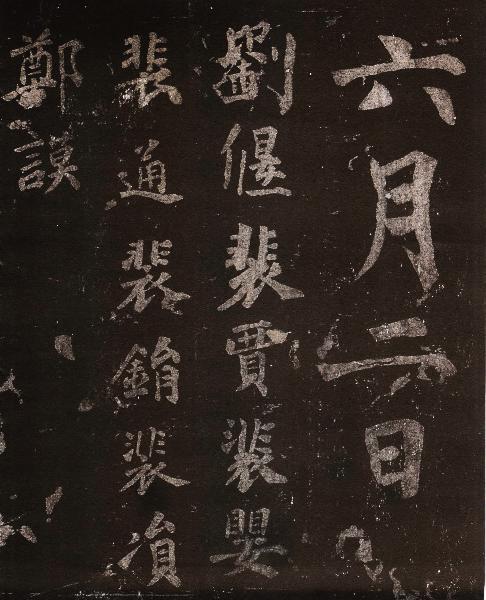 六月二日
劉偃裴賈裴嬰
裴通裴銷裴
鄭謨